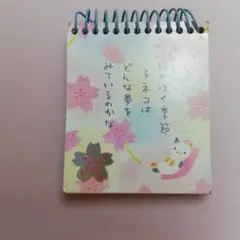 咲く季節
子ネコは
どんな夢を
みているのかな